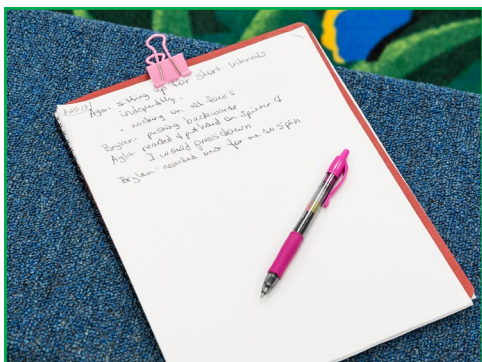 8-25-17 Ayla- sitting up for short intervals
independtly -
• rocking on all fours
Brylan- pushing backwards
Ayla- reached & put hand on spinner &
I would press down
Brylan- reached out for me to spin